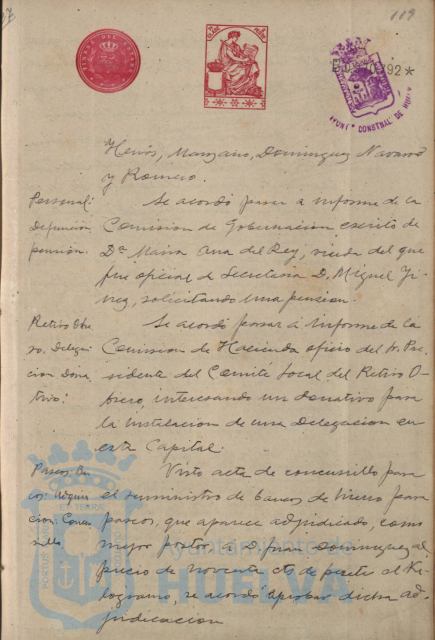 119
AYUNTº CONSTNAL DE HUELVA
Henós, Manzano, Dominguez, Navarro
y Romero.
Personal:
Defunción,
pensión.
Se acordó pasar á informe de la
Comision de Gobernacion escrito de
Dª Maria Ana del Rey, viuda del que
fue oficial de Secretaria D. Miguel Ji-
nez, solicitando una pension.
Retiro Obre-
ro. Delega-
cion Dona-
tivo:
Se acordó pasar á informe de la
Comision de Hacienda oficio del Sr. Pre-
sidente del Comité Local del Retiro O-
brero, interesando un donativo para
la instalacion de una Delegacion en
esta Capital.
Paseos. Ban-
cos: Adquisi-
cion: Concur-
sillo
Visto acta de concursillo para
el suministro de bancos de hierro para
paseos, que aparece adjudicado, como
mejor postor, a D. Juan Dominguez al
precio de noventa cts de peseta el Ki-
logramo, se acordó aprobar dicha ad-
judicacion
Ayuntamiento de
HUELVA